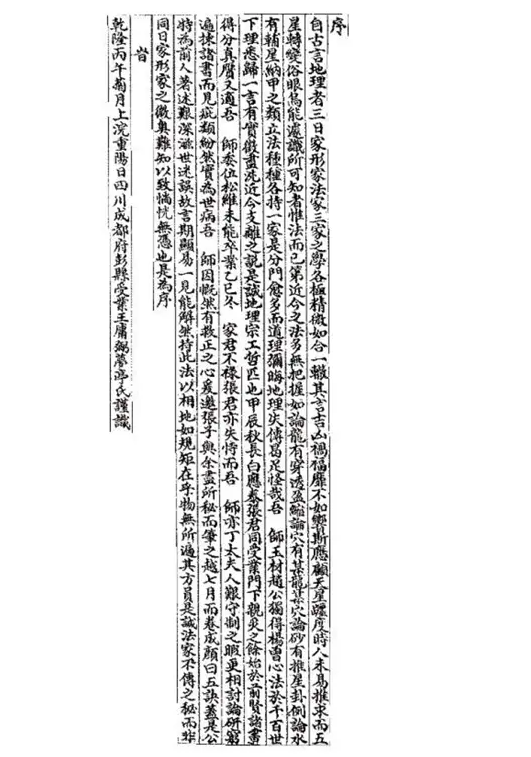 序
自古言地理者三曰家形家法家三家之學各極精微如合一轍其言吉凶禍福靡不如響斯應顧天星躔度時人未易推求而五
星轉變俗眼焉能遽識所可知者惟法而已第近今之法多無把握如論龍有穿透盈縮論穴有某龍某穴論砂有推星卦例論水
有輔星納甲之類立法種種各持一家是分門愈多而道理彌晦地理失傳曷足怪哉吾 師玉材趙公獨得楊曾心法於千百世
下理悉歸一言有實徵盡洗近今支離之說是誠地理宗工哲匠也甲辰秋長白應泰張君同受業門下親炙之餘始於前賢諸書
得分真贗又適吾 師委位松維未能卒業乙巳冬 家君不祿張君亦失恃而吾 師亦丁太夫人艱守制之暇更相討論研窮
遍揀諸書而見疵類紛然實為世病吾 師因慨然有救正之心爰邀張子與余盡所秘而筆之越七月而卷成顏曰五訣蓋是公
特為前人著述艱深滋世迷誤故言期顯易一見能解然持此法以相地如規矩在手物無所遁其方員是誠法家不傳之秘而非
同日家形家之微奧難知以致惝恍無憑也是為序
旹
乾隆丙午菊月上浣重陽日四川成都府彭縣受業王庸弼夢亭氏謹識